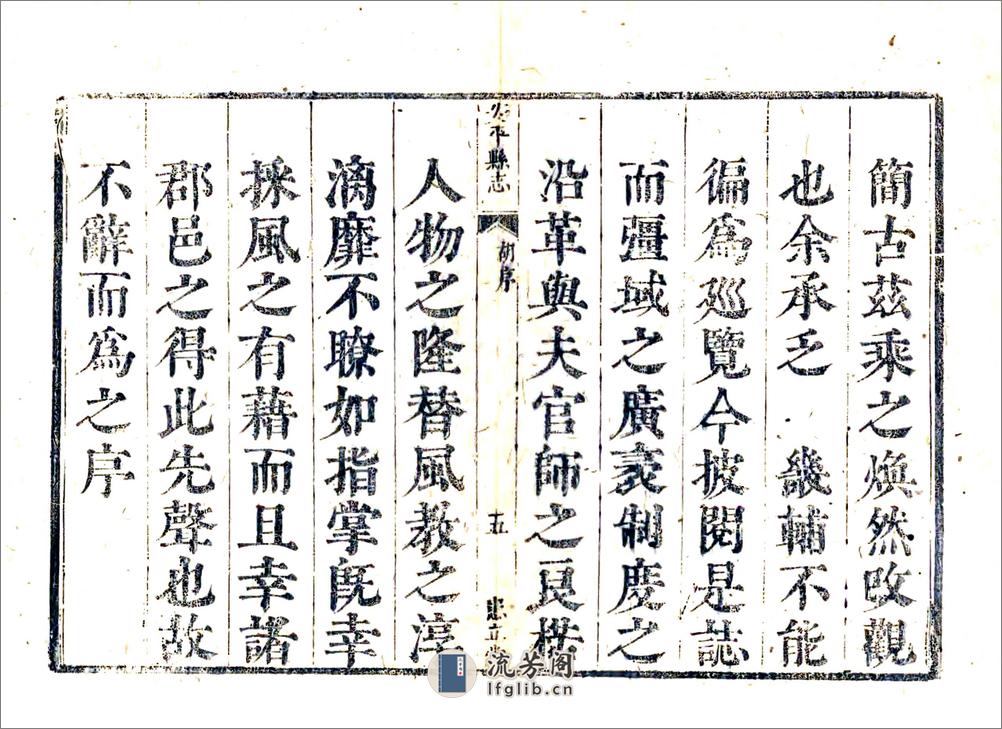 簡古茲乘之煥然改觀
也余承乏　畿輔不能
徧爲廵覽今披閱是誌
而疆域之廣袤制度之
沿革與夫官師之良楛
平縣志
胡序
五
忠立堂
人物之隆替風教之淳
漓靡不瞭如指掌旣幸
採風之有藉而且幸諸
郡邑之得此先聲也故
不辭而爲之序
流芳阁
lfglib.cn